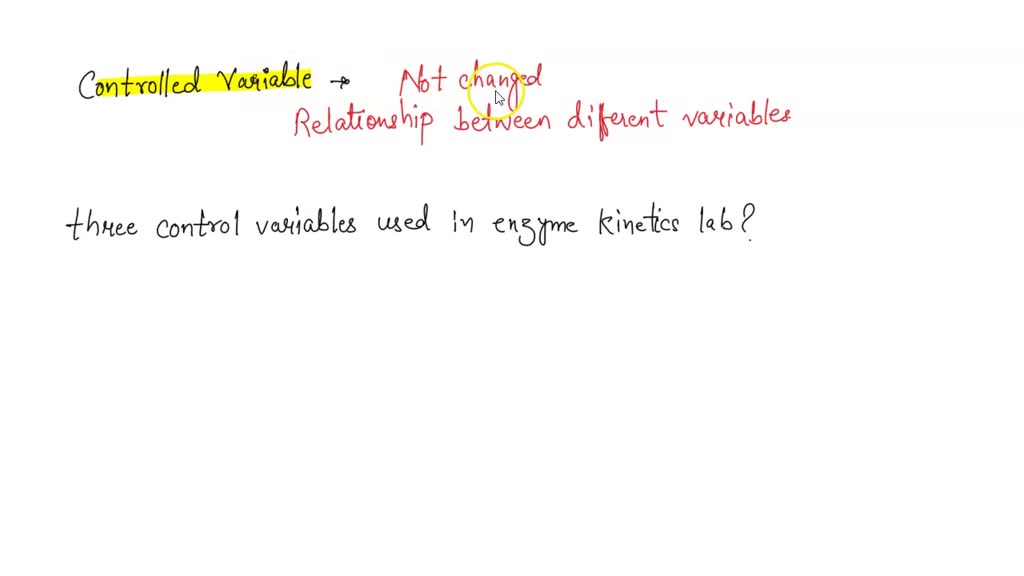 Controlled Variable → Not changed
Relationship between different variables
three control variables used in enzyme kinetics lab?